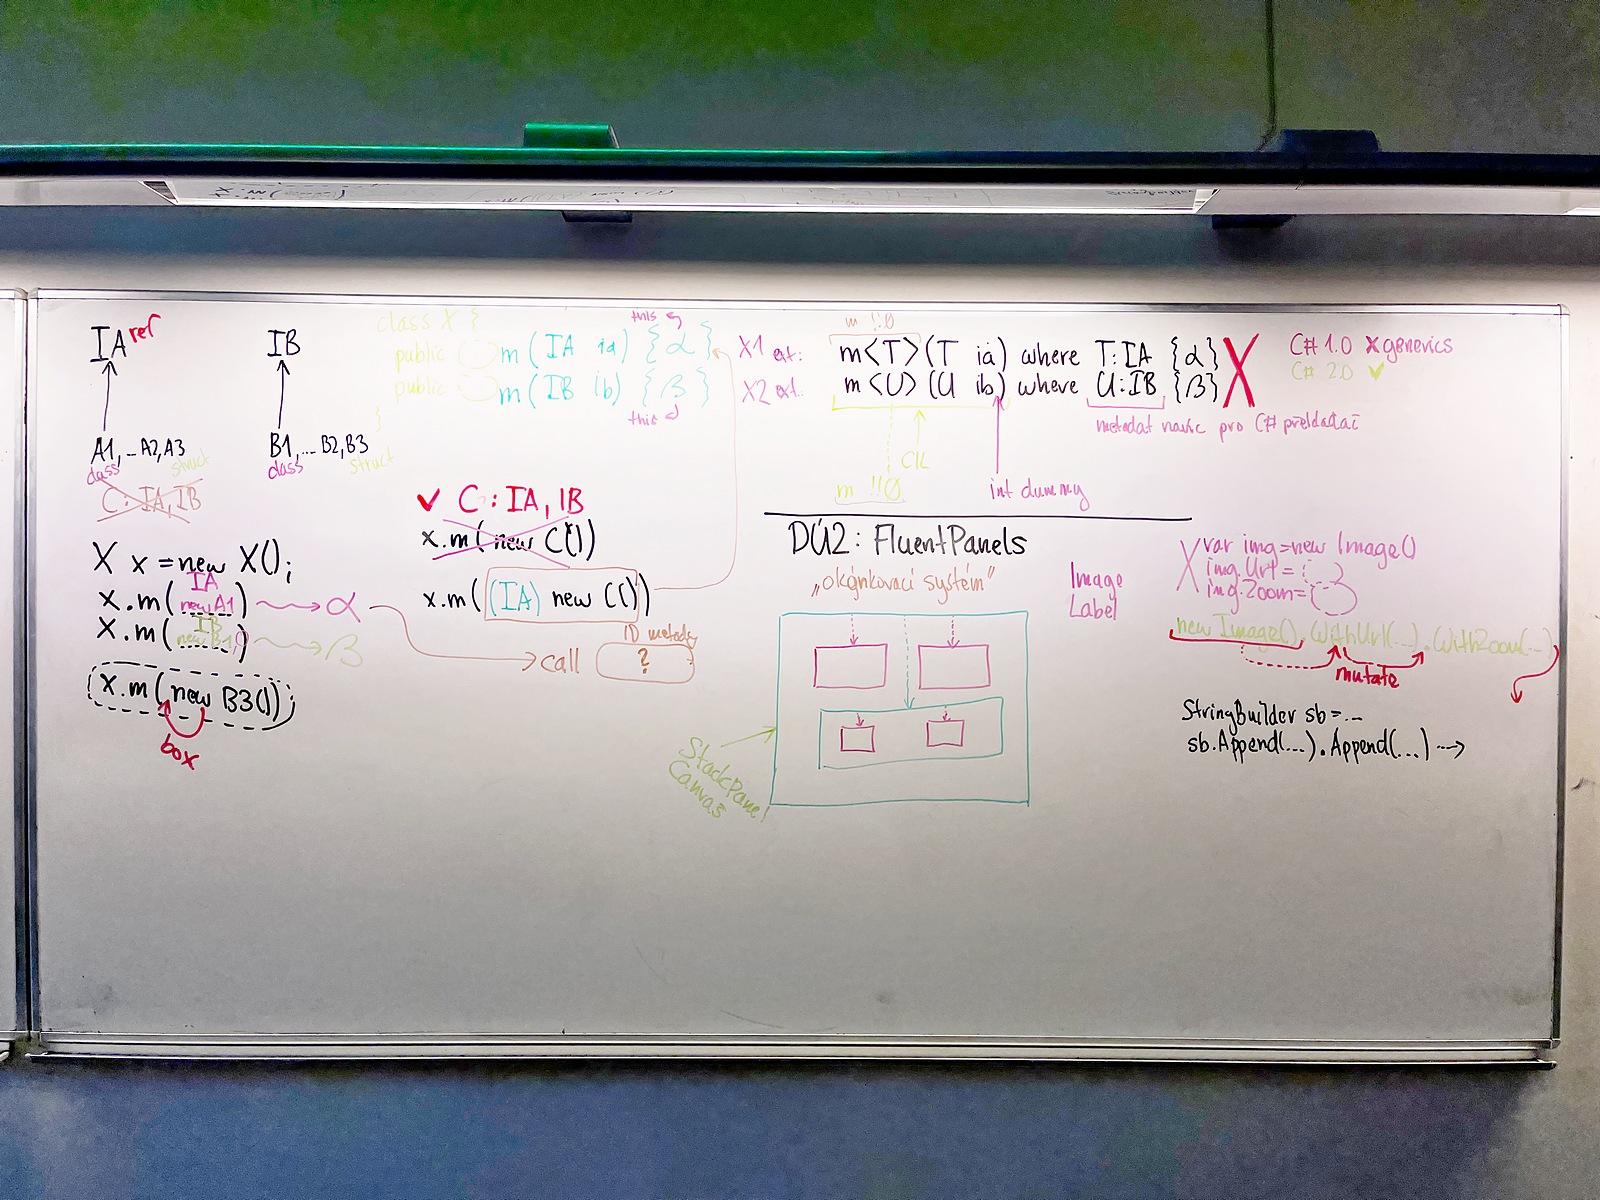 IA ref
IB
A1, ... A2, A3
class struct
B1, ... B2, B3
class struct
C : IA, IB
class X {
this
public m ( IA ia ) { α }
public m ( IB ib ) { β }
this
}
X1 ext:
X2 ext.:
m !!0
m<T>(T ia) where T:IA {α}
m<U>(U ib) where U:IB {β}
X
C# 1.0 X generics
C# 2.0 ✓
metadat navíc pro C# překladač
CIL
m !!0
int dummy
X x = new X();
IA
x.m( new A1 ) → α
IB
x.m( new B1 ) → β
x.m(new B3())
box
✓ C : IA, IB
x.m( new C())
x.m( (IA) new C())
ID metody
call ?
DÚ2: FluentPanels
„okýnkovací systém“
StackPanel
Canvas
Image
Label
X var img=new Image()
img.Url =
img.Zoom=
new Image().WithUrl(...).WithZoom(...)
mutate
StringBuilder sb = ...
sb.Append(...).Append(...) →